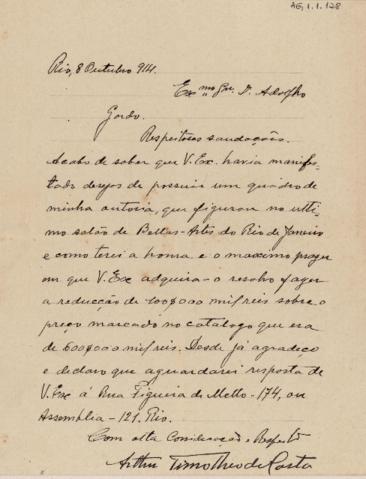 AG, 1.1.128
Rio, 8 Outubro 914.
Ex.mo Snr. D. Adolpho
Gordo.
Respeitosas saudações.
Acabo de saber que V. Ex. havia manifes-
tado desejos de possuir um quadro de
minha autoria, que figurou no ulti-
mo salão de Bellas-Artes do Rio de Janeiro
e como terei a honra e o maximo prazer
em que V. Ex adquira-o resolvo fazer
a reducção de 100$000 milreis sobre o
preço marcado no catalogo que era
de 600$000 milreis. Desde já agradeço
e declaro que aguardarei resposta de
V. Ex á Rua Figueira de Mello-174, ou
Assemblia-121. Rio.
Com alta Consideração e Respeito
Arthur Timotheo da Costa